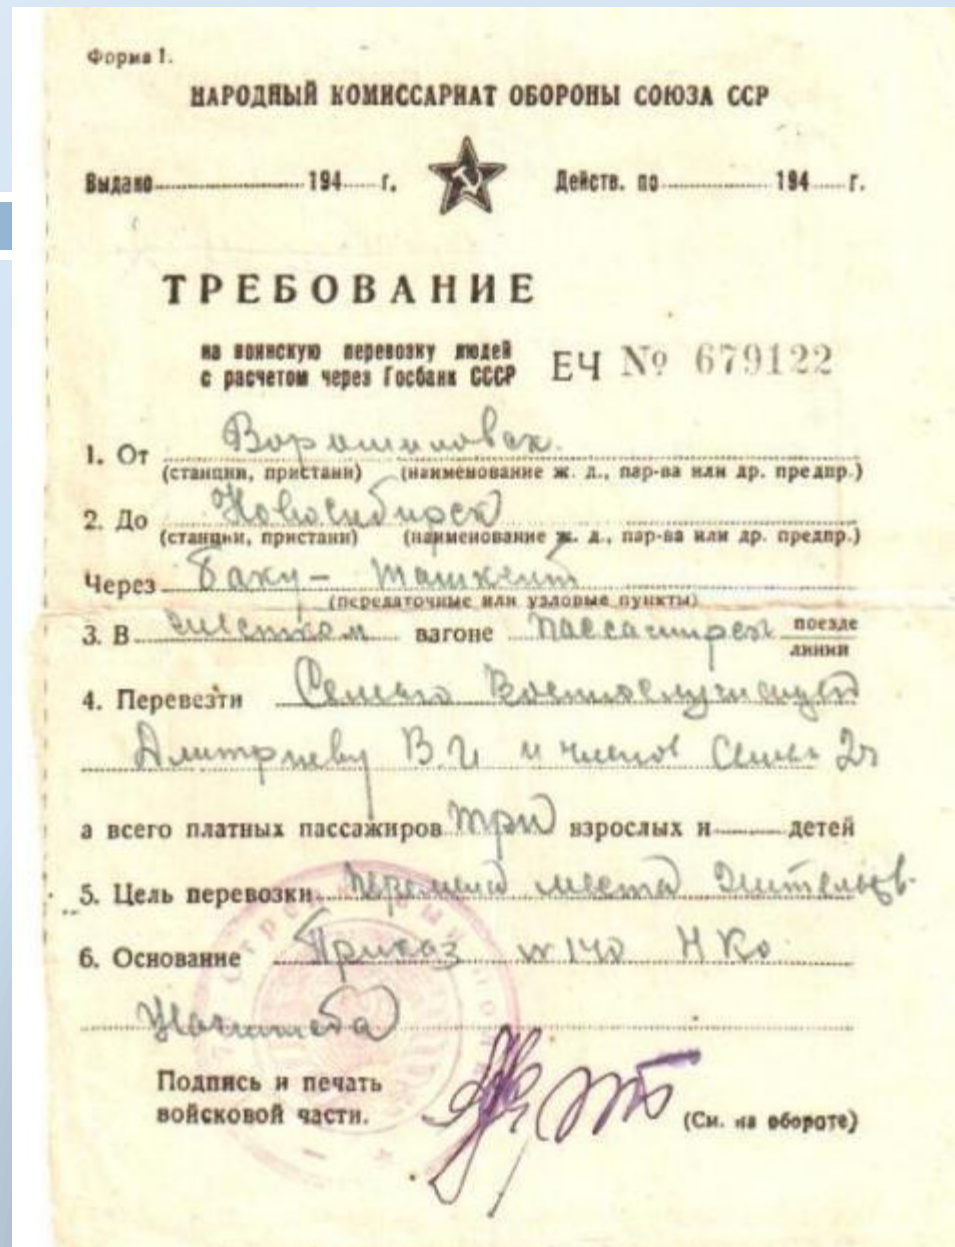 Форма 1.
НАРОДНЫЙ КОМИССАРИАТ ОБОРОНЫ СОЮЗА ССР
Выдано 194 г. Действ. по 194 г.
ТРЕБОВАНИЕ
на воинскую перевозку людей
с расчетом через Госбанк СССР
ЕЧ № 679122
1. От Ворошиловск.
(станции, пристани) (наименование ж. д., пар-ва или др. предпр.)
2. До Новосибирск
(станции, пристани) (наименование ж. д., пар-ва или др. предпр.)
Через Баку - Ташкент
(передаточные или узловые пункты)
3. В жестком вагоне пассажирск поезде
линии
4. Перевезти Семью Военнослужащего
Дмитриеву В.И и членов Семьи 2ч
а всего платных пассажиров три взрослых и детей
5. Цель перевозки перемена места жительств.
6. Основание Приказ №140 НКО
Подпись и печать
войсковой части.
(См. на обороте)